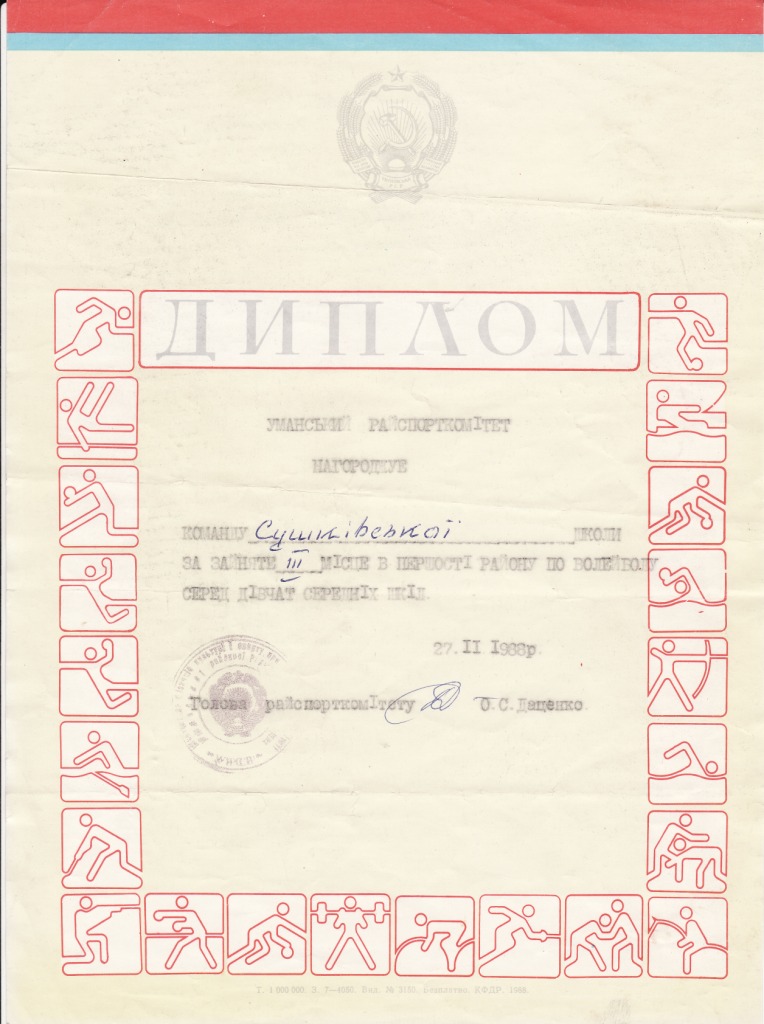 ДИПЛОМ
УМАНСЬКИЙ РАЙСПОРТКОМІТЕТ
НАГОРОДЖУЄ
КОМАНДУ Сушківської ШКОЛИ
ЗА ЗАЙНЯТЕ III МІСЦЕ В ПЕРШОСТІ РАЙОНУ ПО ВОЛЕЙБОЛУ
СЕРЕД ДІВЧАТ СЕРЕДНІХ ШКІЛ.
27.II 1988р.
Голова райспорткомітету О.С.Даценко.
Т. 1 000 000. З. 7—4080. Безплатно. КФДР.